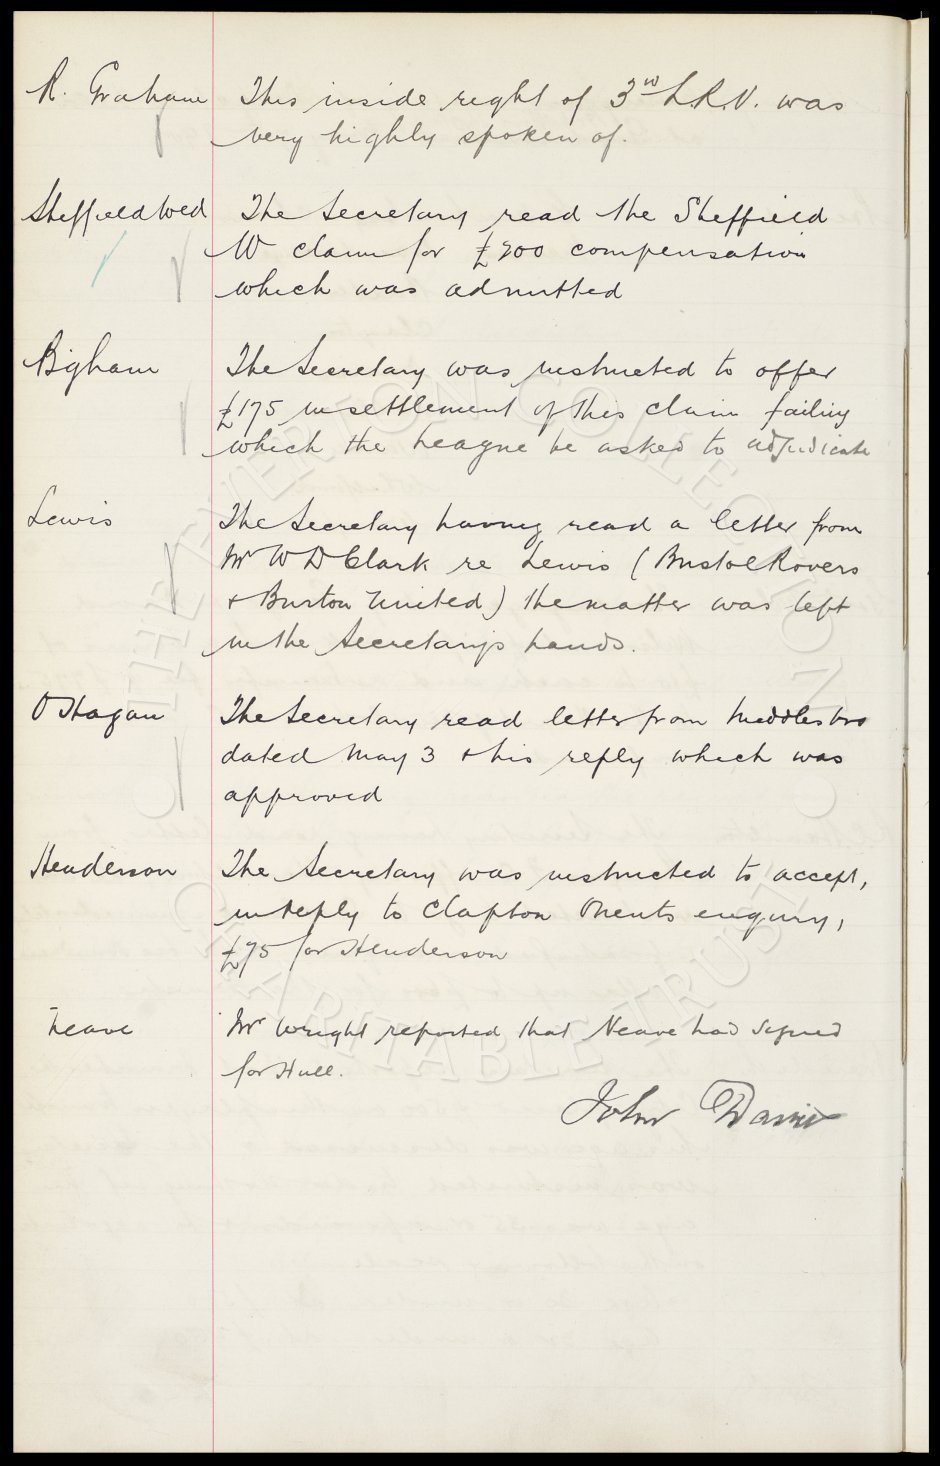 R. Graham This inside right of 3rd L.R.V. was
very highly spoken of.
Sheffield Wed The Secretary read the Sheffield
W claim for £200 compensation
which was admitted
Bigham The Secretary was instructed to offer
£175 in settlement of this claim failing
which the League be asked to adjudicate
Lewis The Secretary having read a letter from
Mr W D Clark re Lewis (Bristol Rovers
& Burton United) the matter was left
in the Secretary's hands.
O'Hagan The Secretary read letter from Middlesbro
dated May 3 & his reply which was
approved
Henderson The Secretary was instructed to accept,
in reply to Clapton Orients enquiry,
£75 for Henderson
Neave Mr Wright reported that Neave had signed
for Hull.
John Davies
THE EVERTON COLLECTION
CHARITABLE TRUST